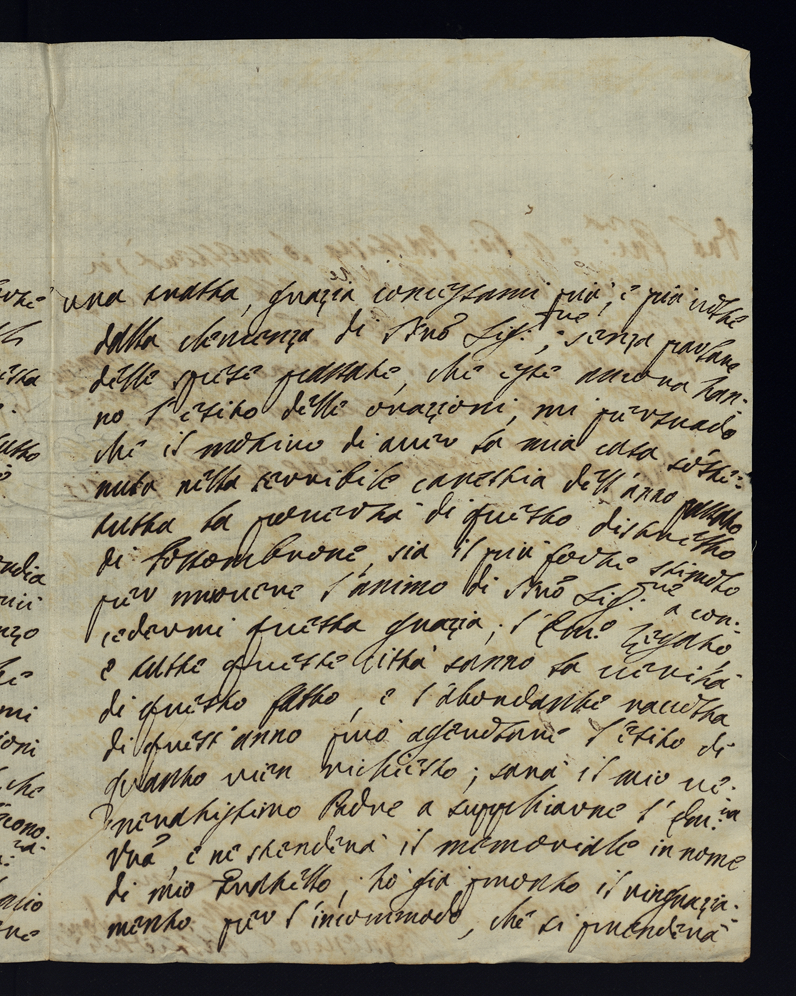 una tratta, grazia concessami più, e più volte
dalla clemenza di Nrō Sig.re, e senza parlare
delle spese passate, che esse ancora han-
no l'esito delle orazioni, mi persuado
che il motivo di aver la mia casa soste-
nuta nella terribile carestia dell'anno passato
tutta la povertà di questo distretto
di Fossombrone, sia il più forte stimolo
per muovere l'animo di Nrō Sig.re a con-
cedermi questa grazia; l'Emō Legato
e tutte queste Città sanno la verità
di questo fatto, e l'abondante raccolta
di quest'anno può agevolare l'esito di
quanto vien richiesto; sarà il mio ve-
neratissimo Padre a supplicarne l'Em.za
Vrā, e ne stenderà il memoriale in nome
di mio Fratello; hò già pronto il ringrazia-
mento per l'incommodo, che si prenderà